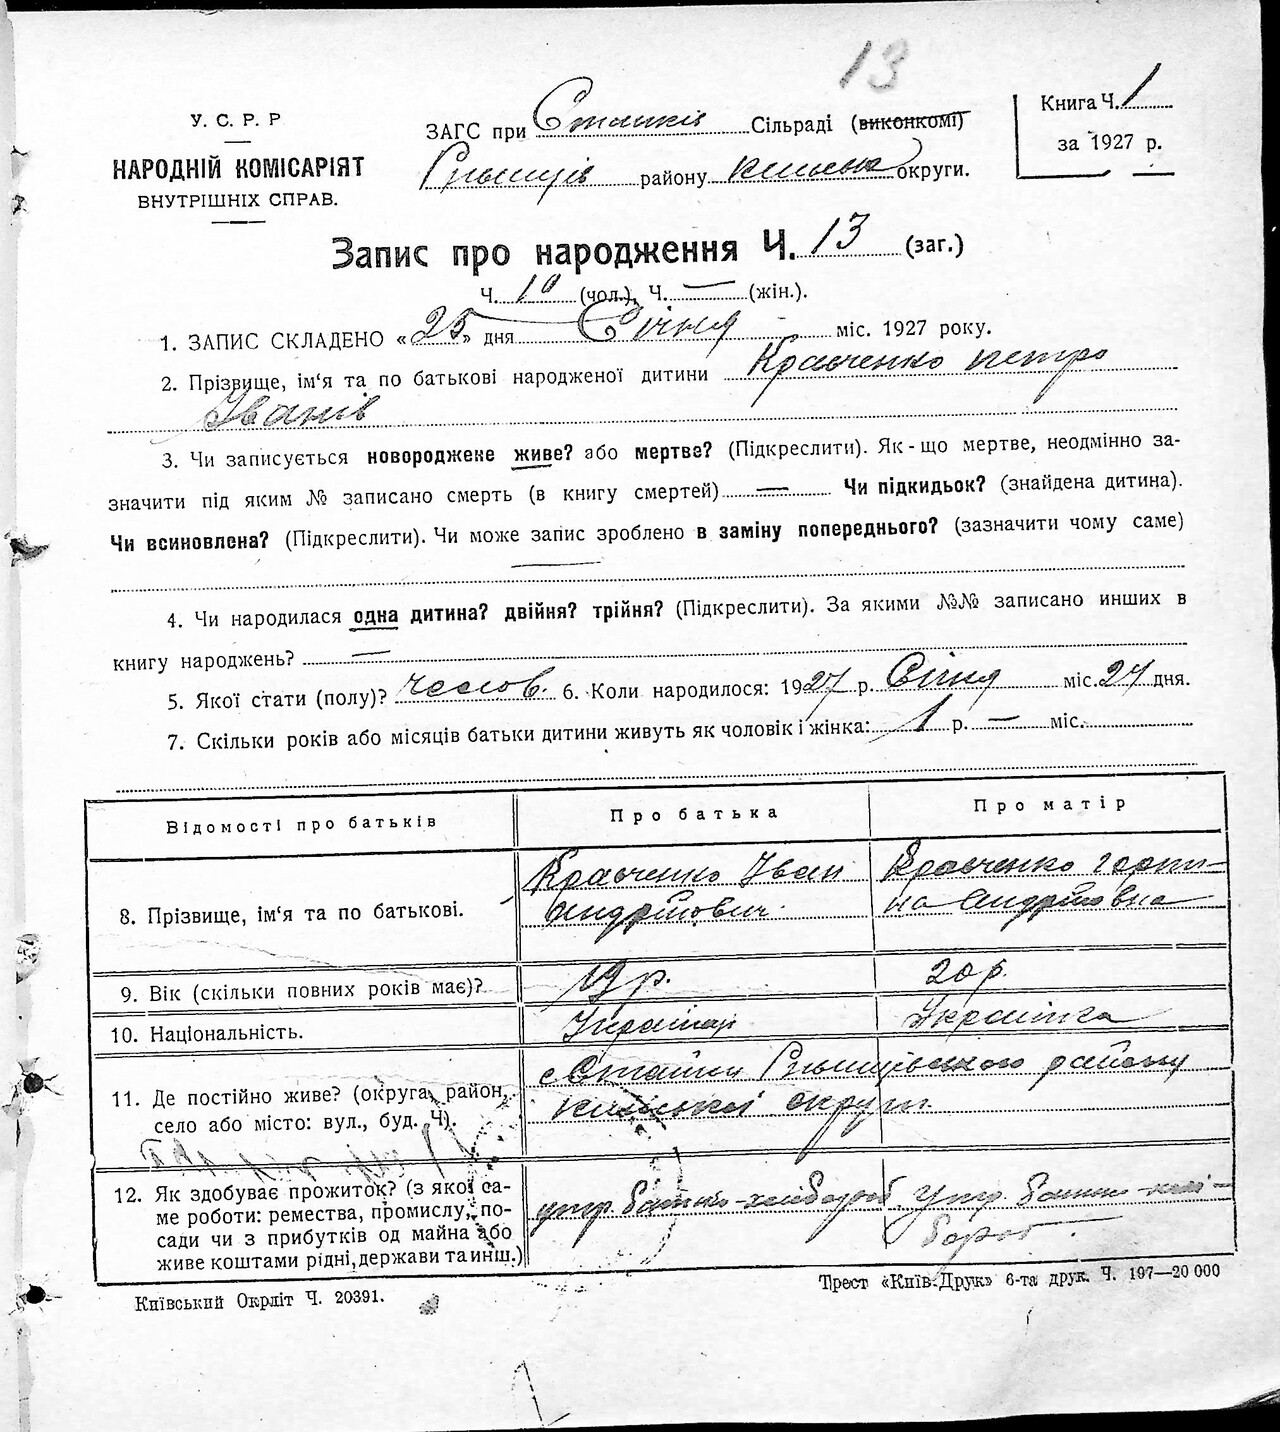 13
У. С. Р. Р
НАРОДНІЙ КОМІСАРІЯТ
ВНУТРІШНІХ СПРАВ.
ЗАГС при Стайків Сільраді (виконкомі)
Ржищів району київськ округи.
Книга Ч. 1
за 1927 р.
Запис про народження Ч. 13 (заг.)
Ч. 10 (чол.), Ч. — (жін.).
1. ЗАПИС СКЛАДЕНО «25» дня Січня міс. 1927 року.
2. Прізвище, ім‘я та по батькові народженої дитини Кравченко петро
Іванів
3. Чи записується новороджене живе? або мертве? (Підкреслити). Як-що мертве, неодмінно за-
значити під яким № записано смерть (в книгу смертей) — Чи підкидьок? (знайдена дитина).
Чи всиновлена? (Підкреслити). Чи може запис зроблено в заміну попереднього? (зазначити чому саме)
—
4. Чи народилася одна дитина? двійня? трійня? (Підкреслити). За якими №№ записано инших в
книгу народжень? —
5. Якої стати (полу)? чолов. 6. Коли народилося: 1927 р. Січня міс. 24 дня.
7. Скільки років або місяців батьки дитини живуть як чоловік і жінка: 1 р. — міс.
Відомості про батьків
Про батька
Про матір
8. Прізвище, ім‘я та по батькові.
Кравченко Іван
Андрійович
Кравченко горпи-
на Андріївна
9. Вік (скільки повних років має)?
19 р.
20 р.
10. Національність.
Українець
Українка
11. Де постійно живе? (округа, район,
село або місто: вул., буд. Ч).
с Стайки Ржищівського району
київської округи
12. Як здобуває прожиток? (з якої са-
ме роботи: ремества, промислу, по-
сади чи з прибутків од майна або
живе коштами рідні, держави та инш.)
утр. батько-хлібороб
утр. батько-хлі-
бороб
Київський Окрліт Ч. 20391.
Трест «Київ-Друк» 6-та друк. Ч. 197—20 000